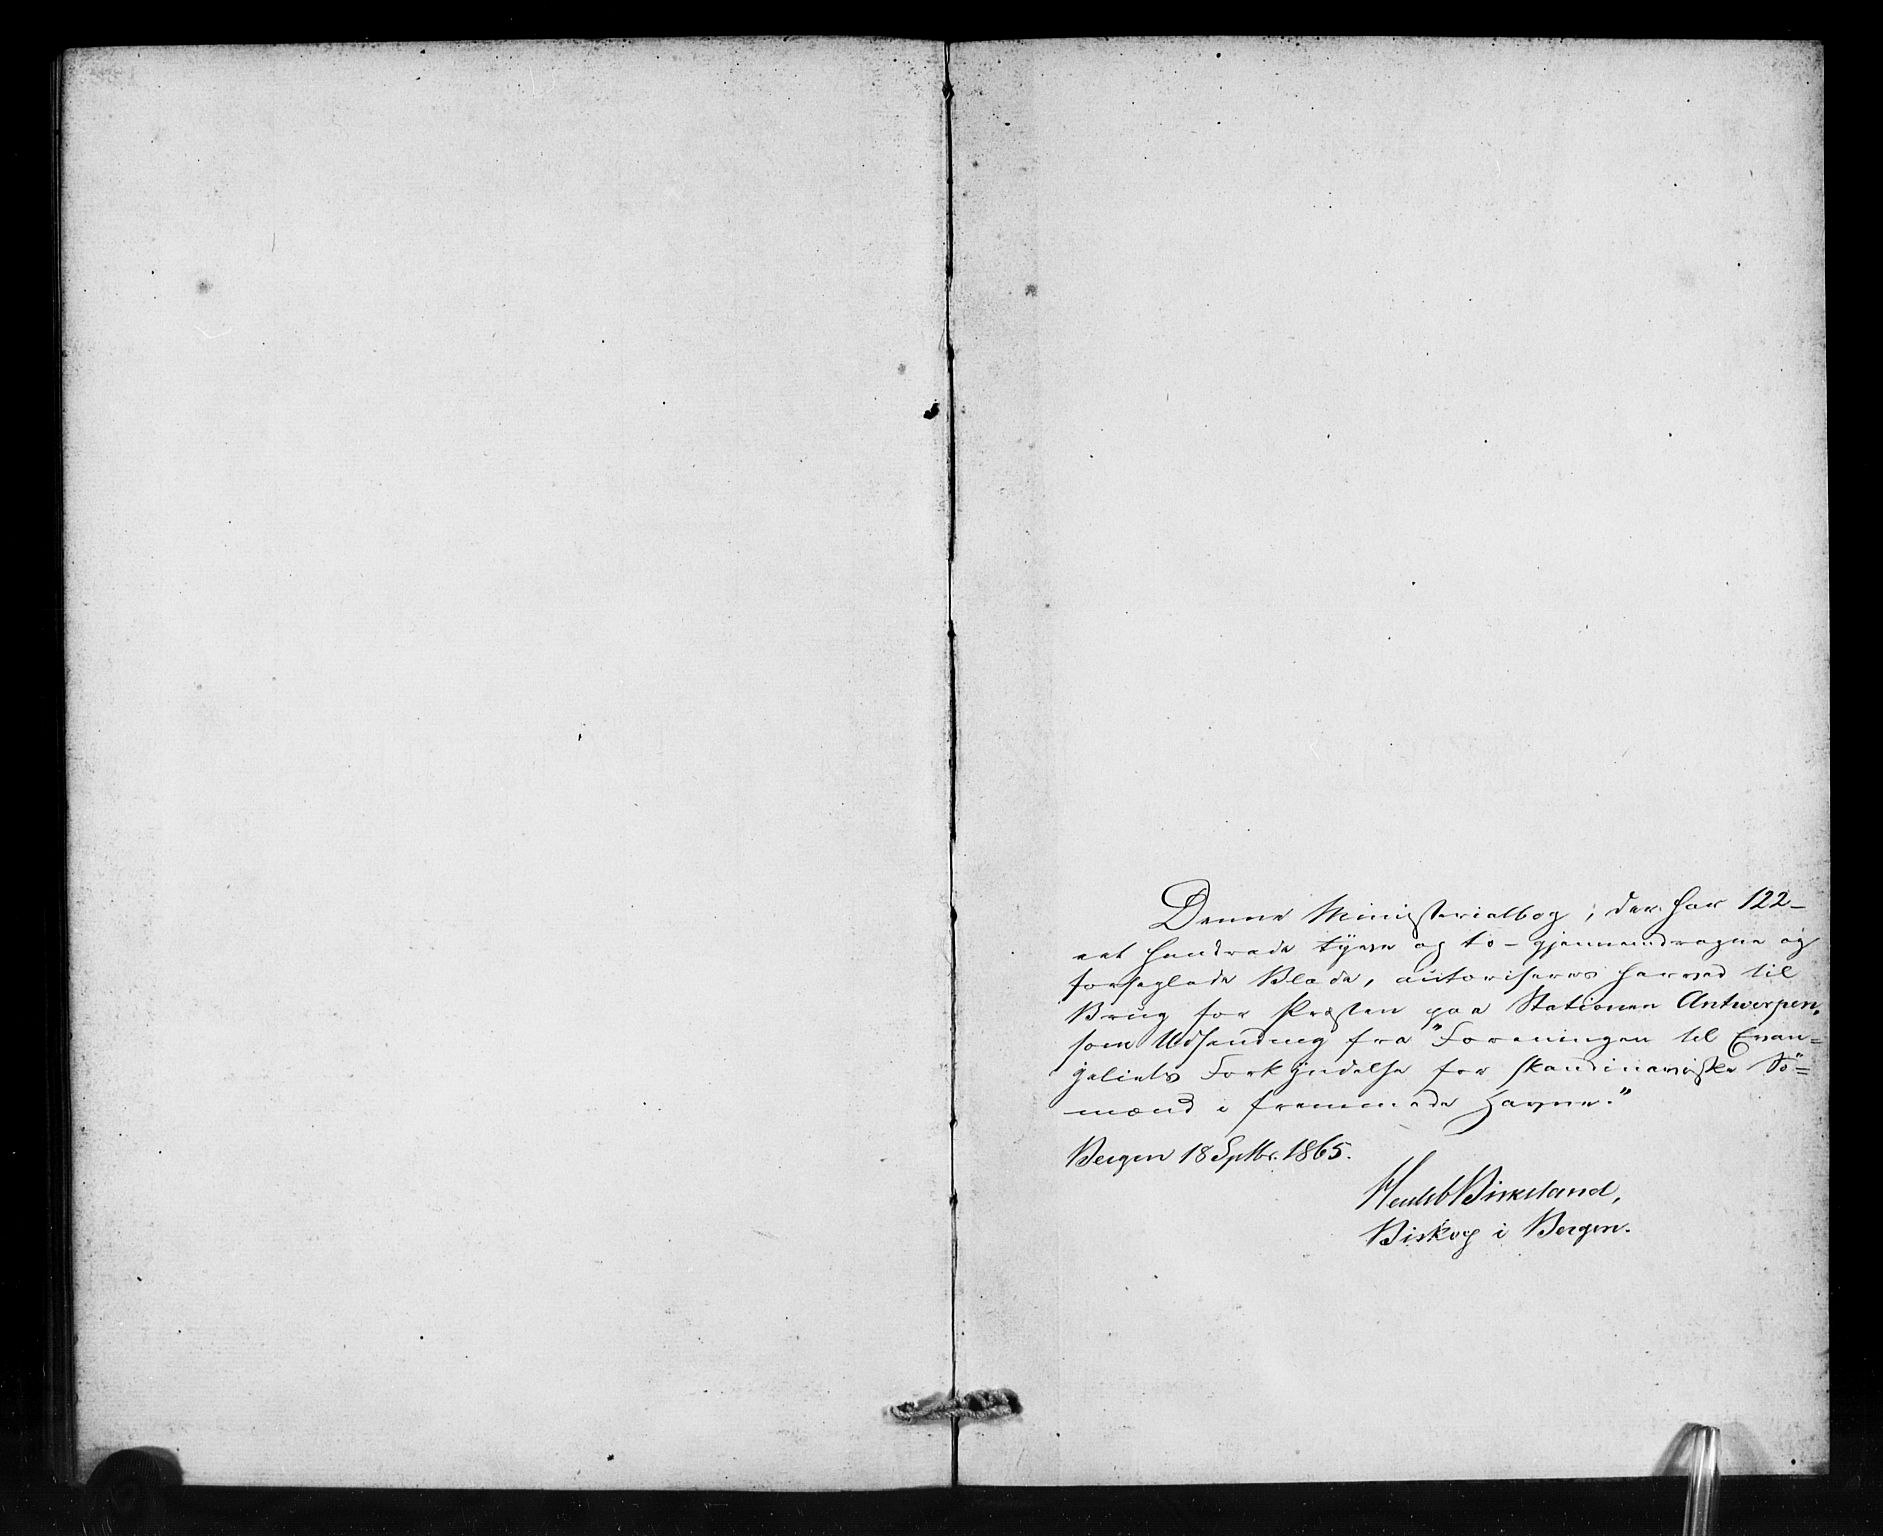 Denne Ministerialbog, der har 122-
eet hundrede tyve og to - gjennemdragne og
forseglede Blade, autoriseres herved til
Brug for Præsten paa Stationen Antwerpen,
som Udsending fra "Foreningen til Evan=
geliets Forkyndelse for skandinaviske Sö=
mænd i fremmede Havne."
Bergen 18 Septbr. 1865.
Birkeland,
Biskop i Bergen.